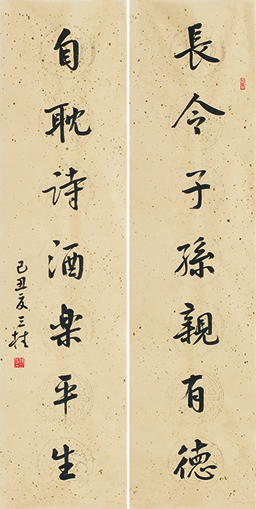 長令子孫親有德
自耽詩酒楽平生
己丑夏三桂